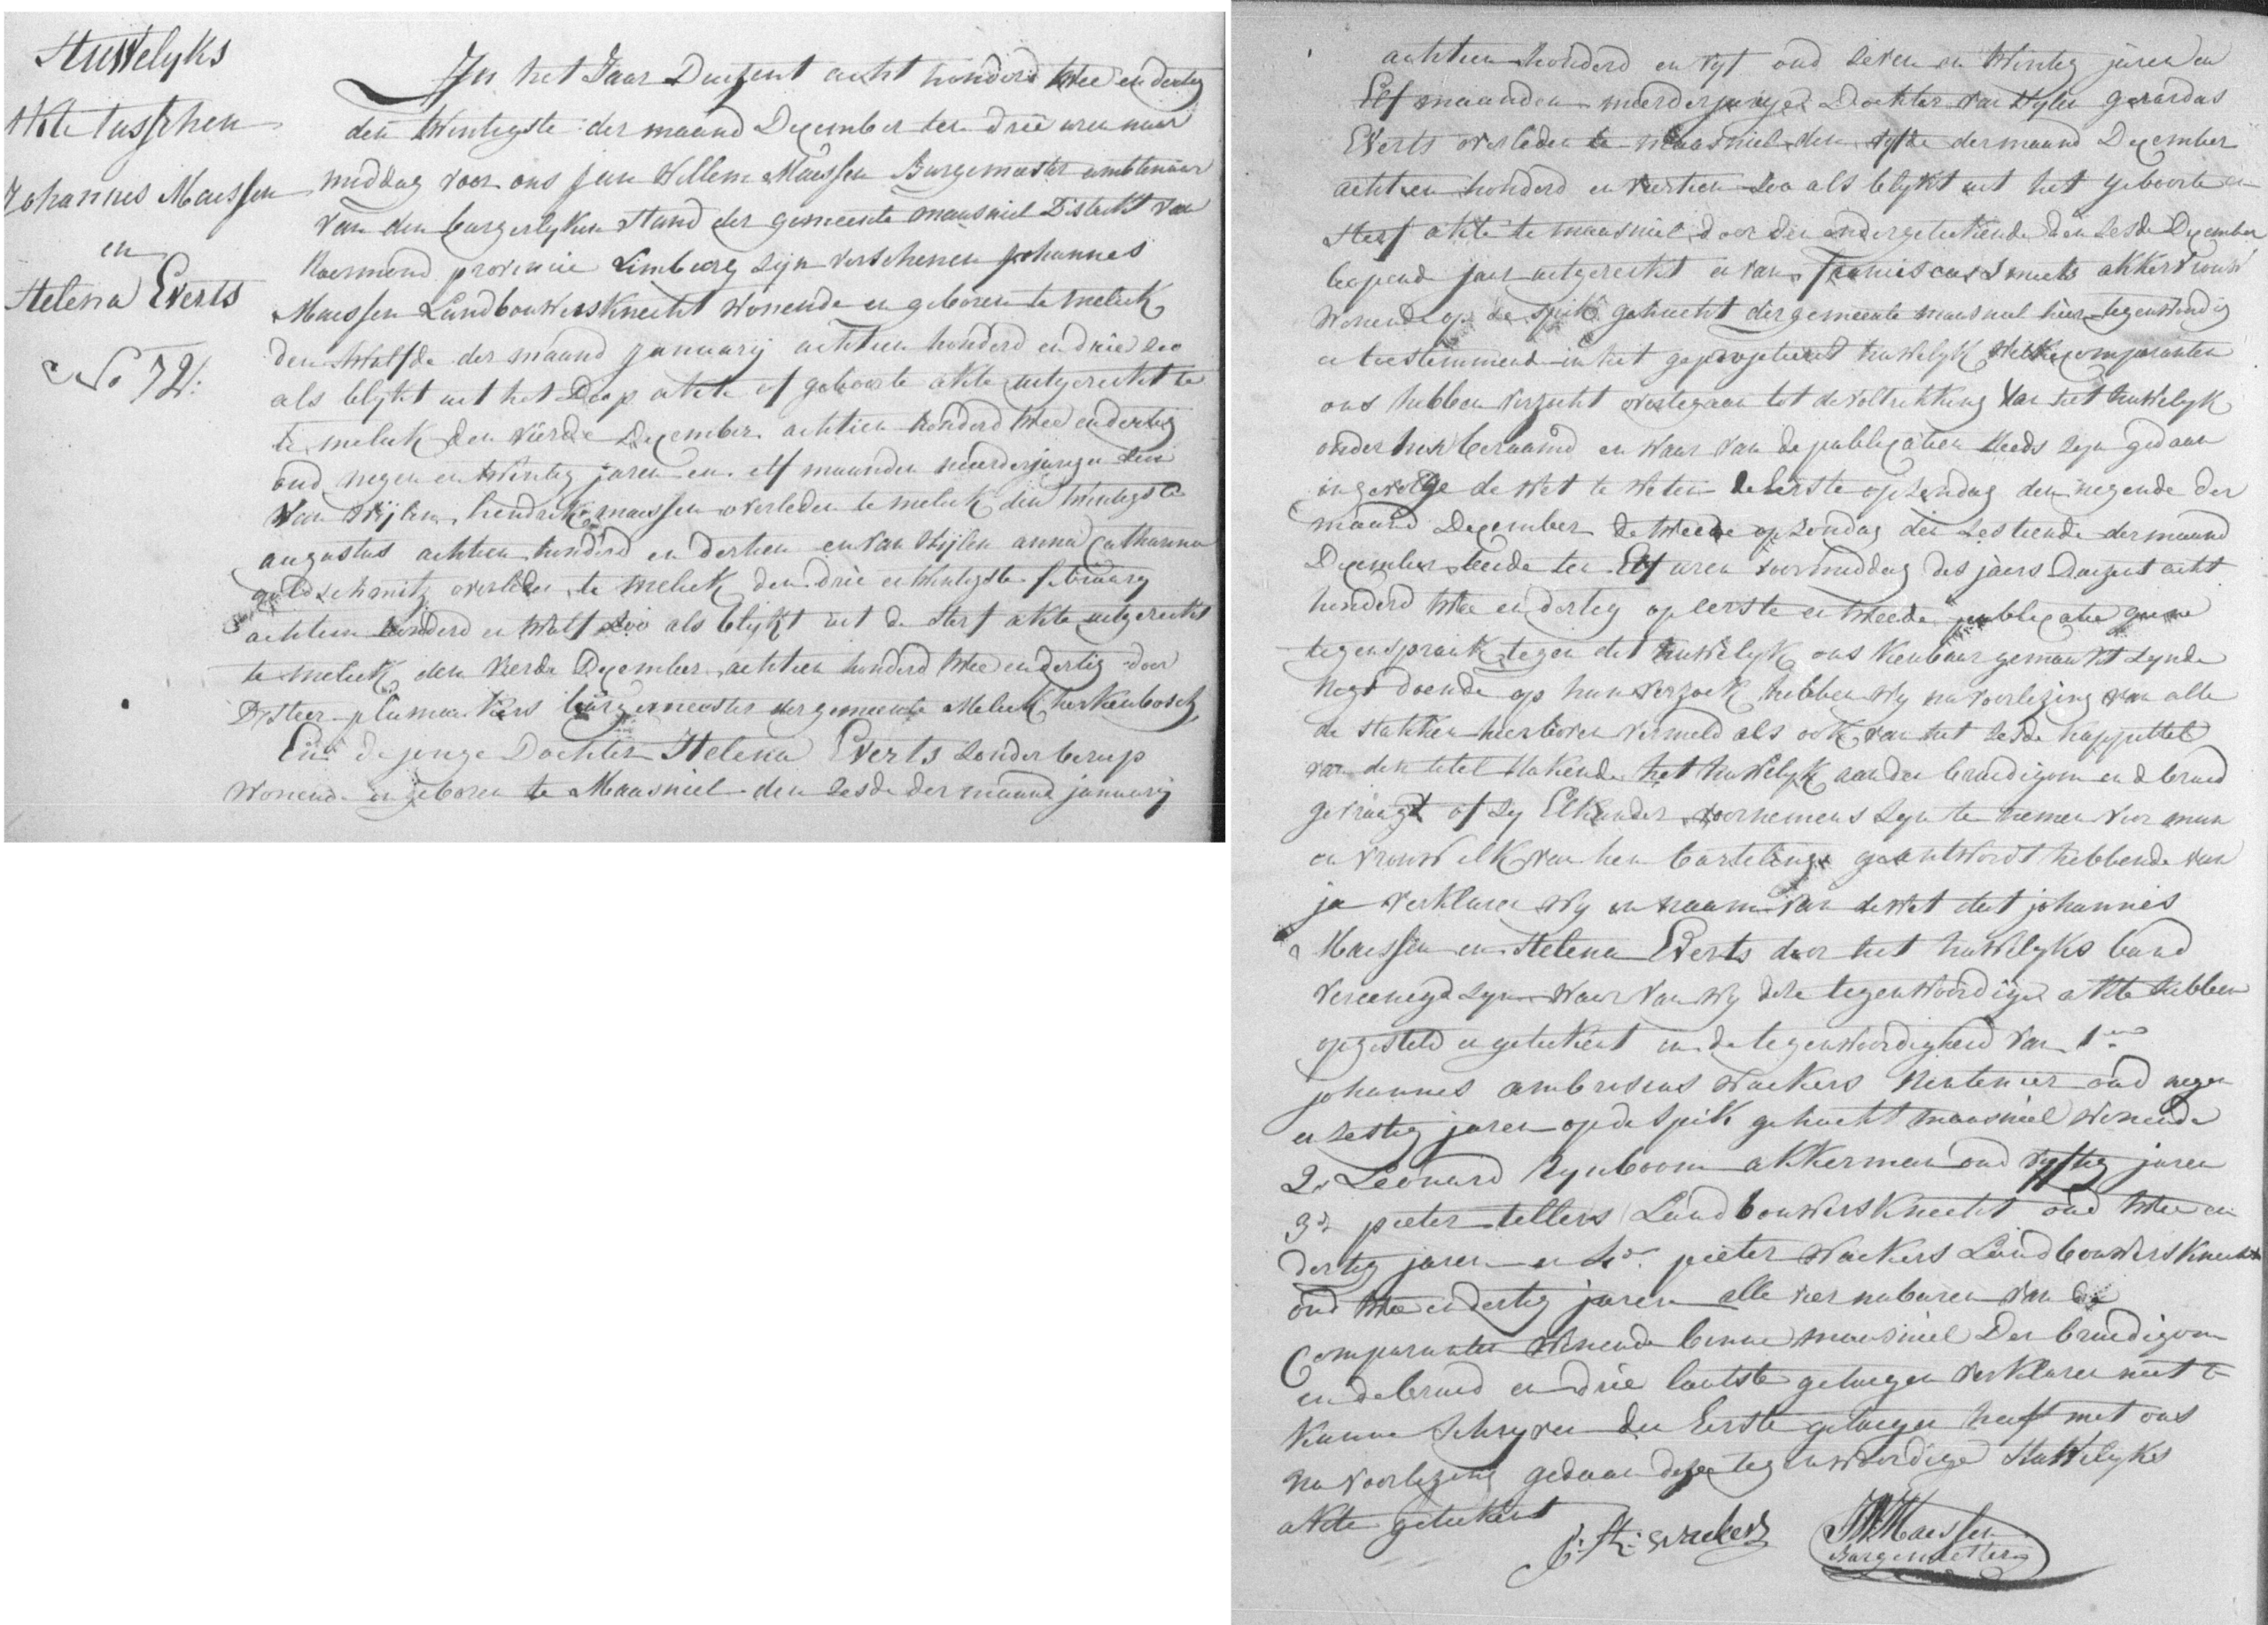 Huwelyks
Akte tusschen
Johannes Maessen
en
Helena Everts
No 12.
In het Jaar Duizent acht honderd twee en dertig
den twintigste der maand December ter drie uren naar
middag voor ons Jan Willem Maessen Burgemeester ambtenaar
van den burgerlyken stand der gemeente maasniel District van
Roermond provincie Limburg zijn verschenen Johannes
Maessen Landbouwersknecht wonende en geboren te melick
den twalfde der maand January achtien honderd en drie zoo
als blykt uit het Doop akte of geboorte akte uitgereikt te
te melick den vierde December achtien honderd twee en dertig
oud negen en twintig jaren en elf maanden meerderjarige zoon
van wijlen hendrik maessen overleden te melick den twintigste
augustus achtien honderd en dertien en van wijlen anna Catharina
goldschmitz overleden te melick den drie en twintigste february
achtien honderd en twalf zoo als blykt uit de sterf akte uitgereikt
te melick den vierde December achtien honderd twee en dertig door
D'Heer plumakers burgemeester der gemeente Melick herkenbosch
En de jonge Dochter Helena Everts zonder beroep
wonende en geboren te Maasniel den zesde der maand january
achtien honderd en vyf oud zeven en twintig jaren en
Elf maanden meerderjarige Dochter van wylen gerardus
Everts overleden te maasniel den vyfde der maand December
achtien honderd en viertien zoo als blykt uit het geboorte en
sterf akte te maasniel door den ondergetekende den zesde December
loopend jaar uitgereikt en van franciscus Smeets akkervrouw
wonende op de spik gehucht der gemeente maasniel hier tegenwoordig
en toestemmend in het geprojeteerd huwelyk welke comparanten
ons hebben verzocht overtegaan tot de voltrekking van het huwelyk
onder hen beraamd en waar van de publicatien reeds zyn gedaan
ingevolge de wet te weten de eerste op zondag den negende der
maand December de tweede op zondag den zestiende der maand
December beide ten Elf uren voormiddag des jaers Duizent acht
honderd twee en dertig op eerste en tweede publicatie geene
tegenspraak tegen dit huwelyk ons kenbaar gemaakt zynde
Regt doende op hun verzoek hebben wy na voorlezing van alle
de stukken hierboven vermeld als ook van het zesde kappittel
van den titel slakende het huwelyk aan den bruidigom en d bruid
gevraagt of zy Elkander voornemens zyn te nemen voor man
en vrouw elk van hen barteling geantwordt hebbende van
ja verklaren wy in naam van de wet dat johannes
Maessen en Helena Everts door het huwelyks band
vereenegd zyn waar van wy deze tegenwoordige akte hebben
opgesteld en getekent in de tegenwoordigheid van 1°
johannes ambrosius Wackers Rentenier oud negen
en zestig jaren op de spik gehucht maasniel wonende
2° Leonard Rynboom akkerman oud vyftig jaren
3° pieter tellers Landbouwersknecht oud twee en
dertig jaren en 4° pieter Wackers Landbouwersknecht
oud twee en dertig jaren alle vier nabaren van de
Comparanten wonende binne maasniel Den bruidigom
en de bruid en drie laatste getuigen verklaren niet te
kunne schryven den Eerste getuigen heeft met ons
na voorlezing gedaan deze tegenwoordige Huwelyks
akte getekent
J: A: Wackers
JW Maessen
Burgemeester